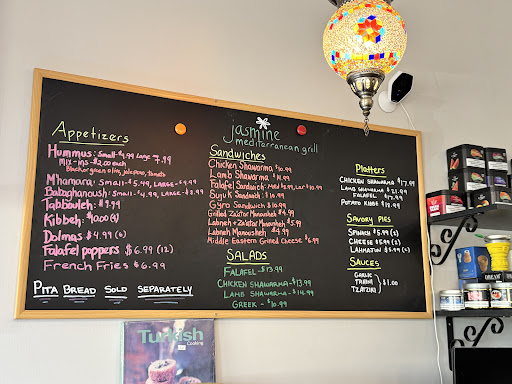 jasmine
mediterranean grill
Appetizers
Hummus: Small-$4.99 Large 7.99
MIX-INS-$2.00 each
Black or green olive, jalapeno, tomato
Mhamara: Small-$5.99, LARGE-$9.99
Babaghanoush: Small-$4.99, LARGE-$8.99
Tabbouleh: $9.99
Kibbeh:
Dolmas $4.99 (6)
Falafel poppers $6.99 (12)
French Fries $6.99
PITA BREAD SOLD SEPARATELY
Sandwiches
Chicken Shawarma $10.99
Lamb Shawarma
Falafel Sandwich:
Sujuk Sandwich $10.99
Gyro Sandwich $10.99
Grilled Zaatar Manaqish
Labneh + Zaatar Manaqish
Labneh Manaqisheh
Middle Eastern Grilled Cheese
SALADS
FALAFEL-$13.99
CHICKEN SHAWARMA-$13.99
LAMB SHAWARMA-$14.99
GREEK - $10.99
Platters
CHICKEN SHAWARMA $17.99
LAMB SHAWARMA $21.99
FALAFEL $17.99
POTATO KIBBE
SAVORY PIES
SPINACH $5.99
CHEESE $5.99
LAHMAJUN $5.99
SAUCES
GARLIC
TAHINI $1.00
TZATZIKI
Turkish
Cooking